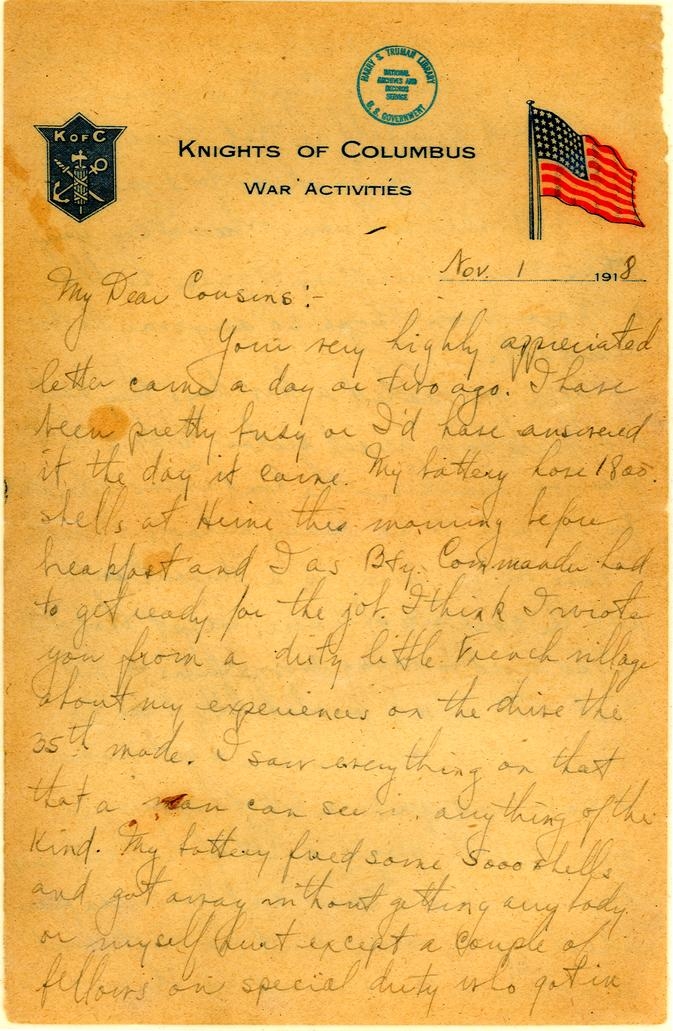 HARRY S. TRUMAN LIBRARY
NATIONAL
ARCHIVES AND
RECORDS
SERVICE
U. S. GOVERNMENT
K OF C
KNIGHTS OF COLUMBUS
WAR ACTIVITIES
Nov. 1 1918
My Dear Cousins:-
Your very highly appreciated
letter came a day or two ago. I have
been pretty busy or I'd have answered
it the day it came. My battery hove 1800
shells at Heine this morning before
breakfast and I as Bty. Commander had
to get ready for the job. I think I wrote
you from a dirty little French village
about my experiences on the drive the
35th made. I saw everything on that
that a man can see in anything of the
kind. My battery fired some 5000 shells
and got away without getting any body
or myself hurt except a couple of
fellows on special duty who got in